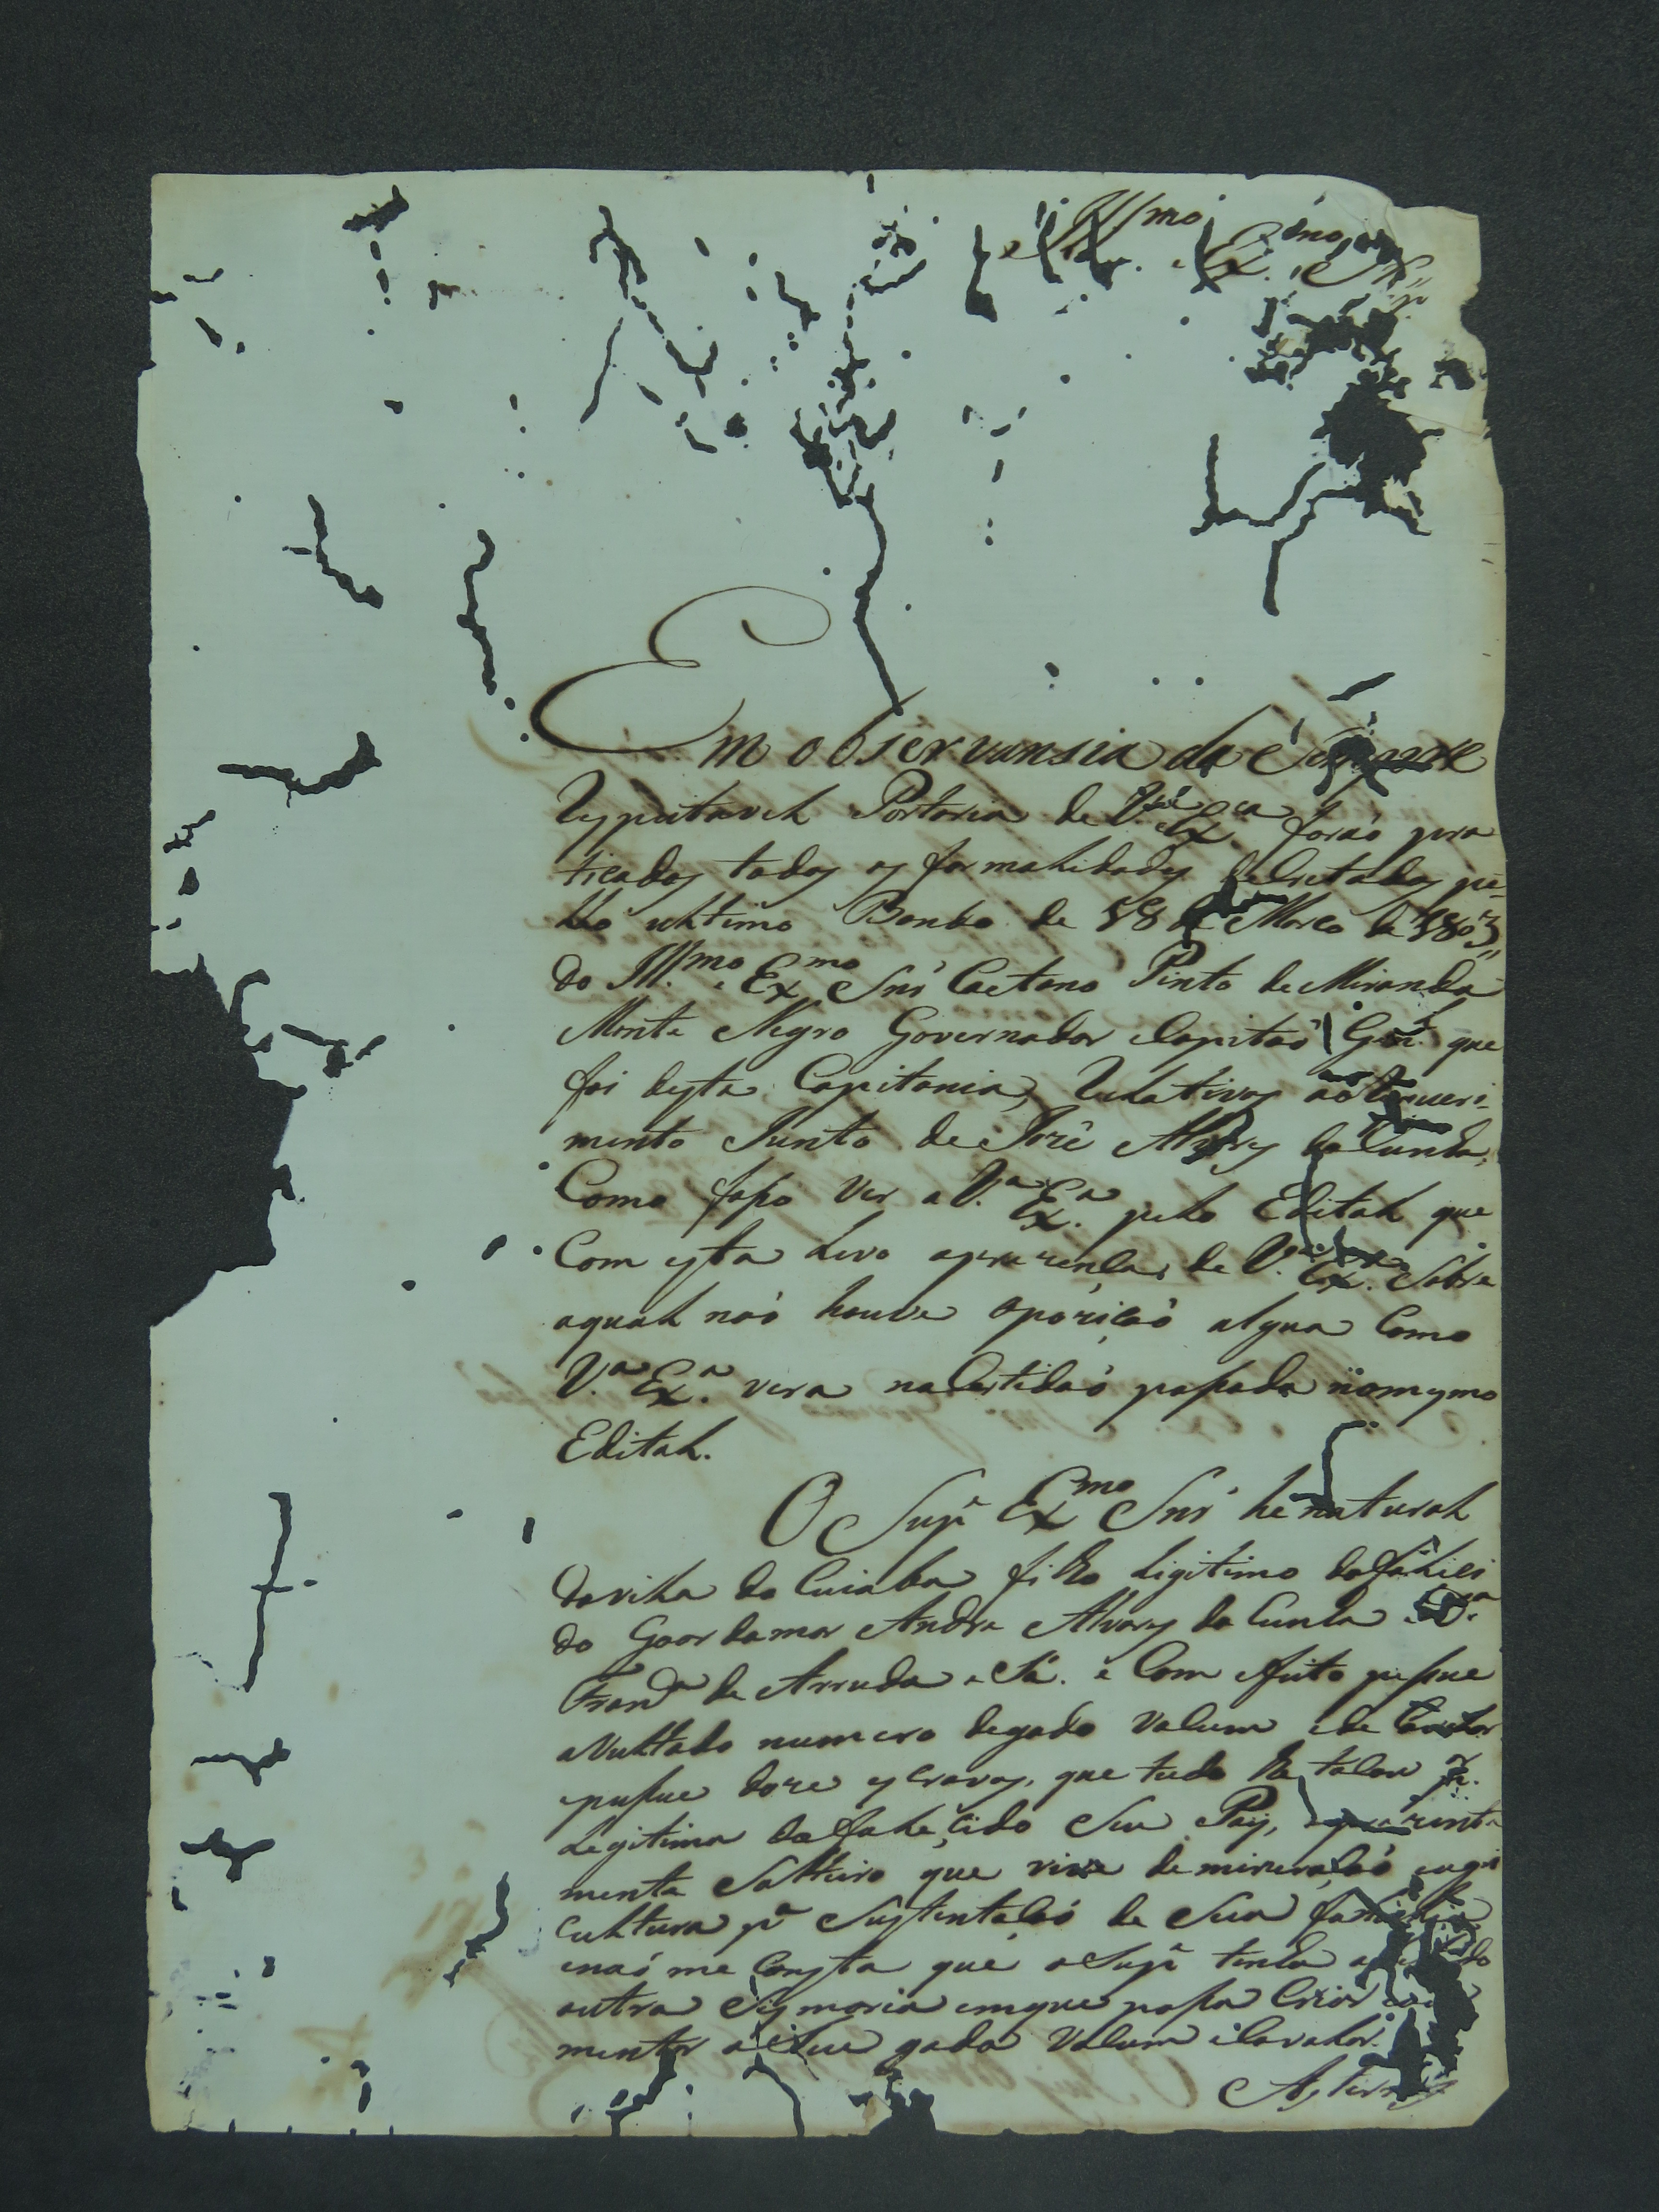 Ill.mo Ex.mo Snr
Em observansia da Sempre
Respeitavel Portaria de V.ª Ex.ca foraó pra
ticadas todas as formalidades decretadas pe-
llo ultimo Bando de 18 de Março de 1803
do Ill.mo e Ex.mo Snr Caetano Pinto de Miranda
Monte Negro Governador Capitaó Gen.l que
foi desta Capitania, Relativos ao Requeri-
mento Junto de Jozé Alvares da Cunha,
Como faço ver a V.ª Ex.ª pello Edital que
Com esta levo aprezença de V.ª Ex.ª Sobre
aqual naó houve opoziçaó algua Como
V.ª Ex.ª vera naCertidaó passada nomesmo
Edital.
O Sup.e Ex.mo Snr he natural
davilla do Cuiaba filho Ligitimo dofalleci
do Goardamor Andre Alvares da Cunha e D.ª
Fran.ca de Arruda e Sá. e Com efeito pessue
avultado numero degado Valum ede
pessue doze escravos, que tudo lhe talou
Legitima dofallecido Seu Pay, eprezente
mente Solteiro que vive de mineraçaó eagri
cultura p.ª Sustentaçaó de Sua familia
enaó me Consta que o Sup.e tenha
outra Sismaria emque possa Criar
mentar o Seu gado Valum eCavalar.
As terras